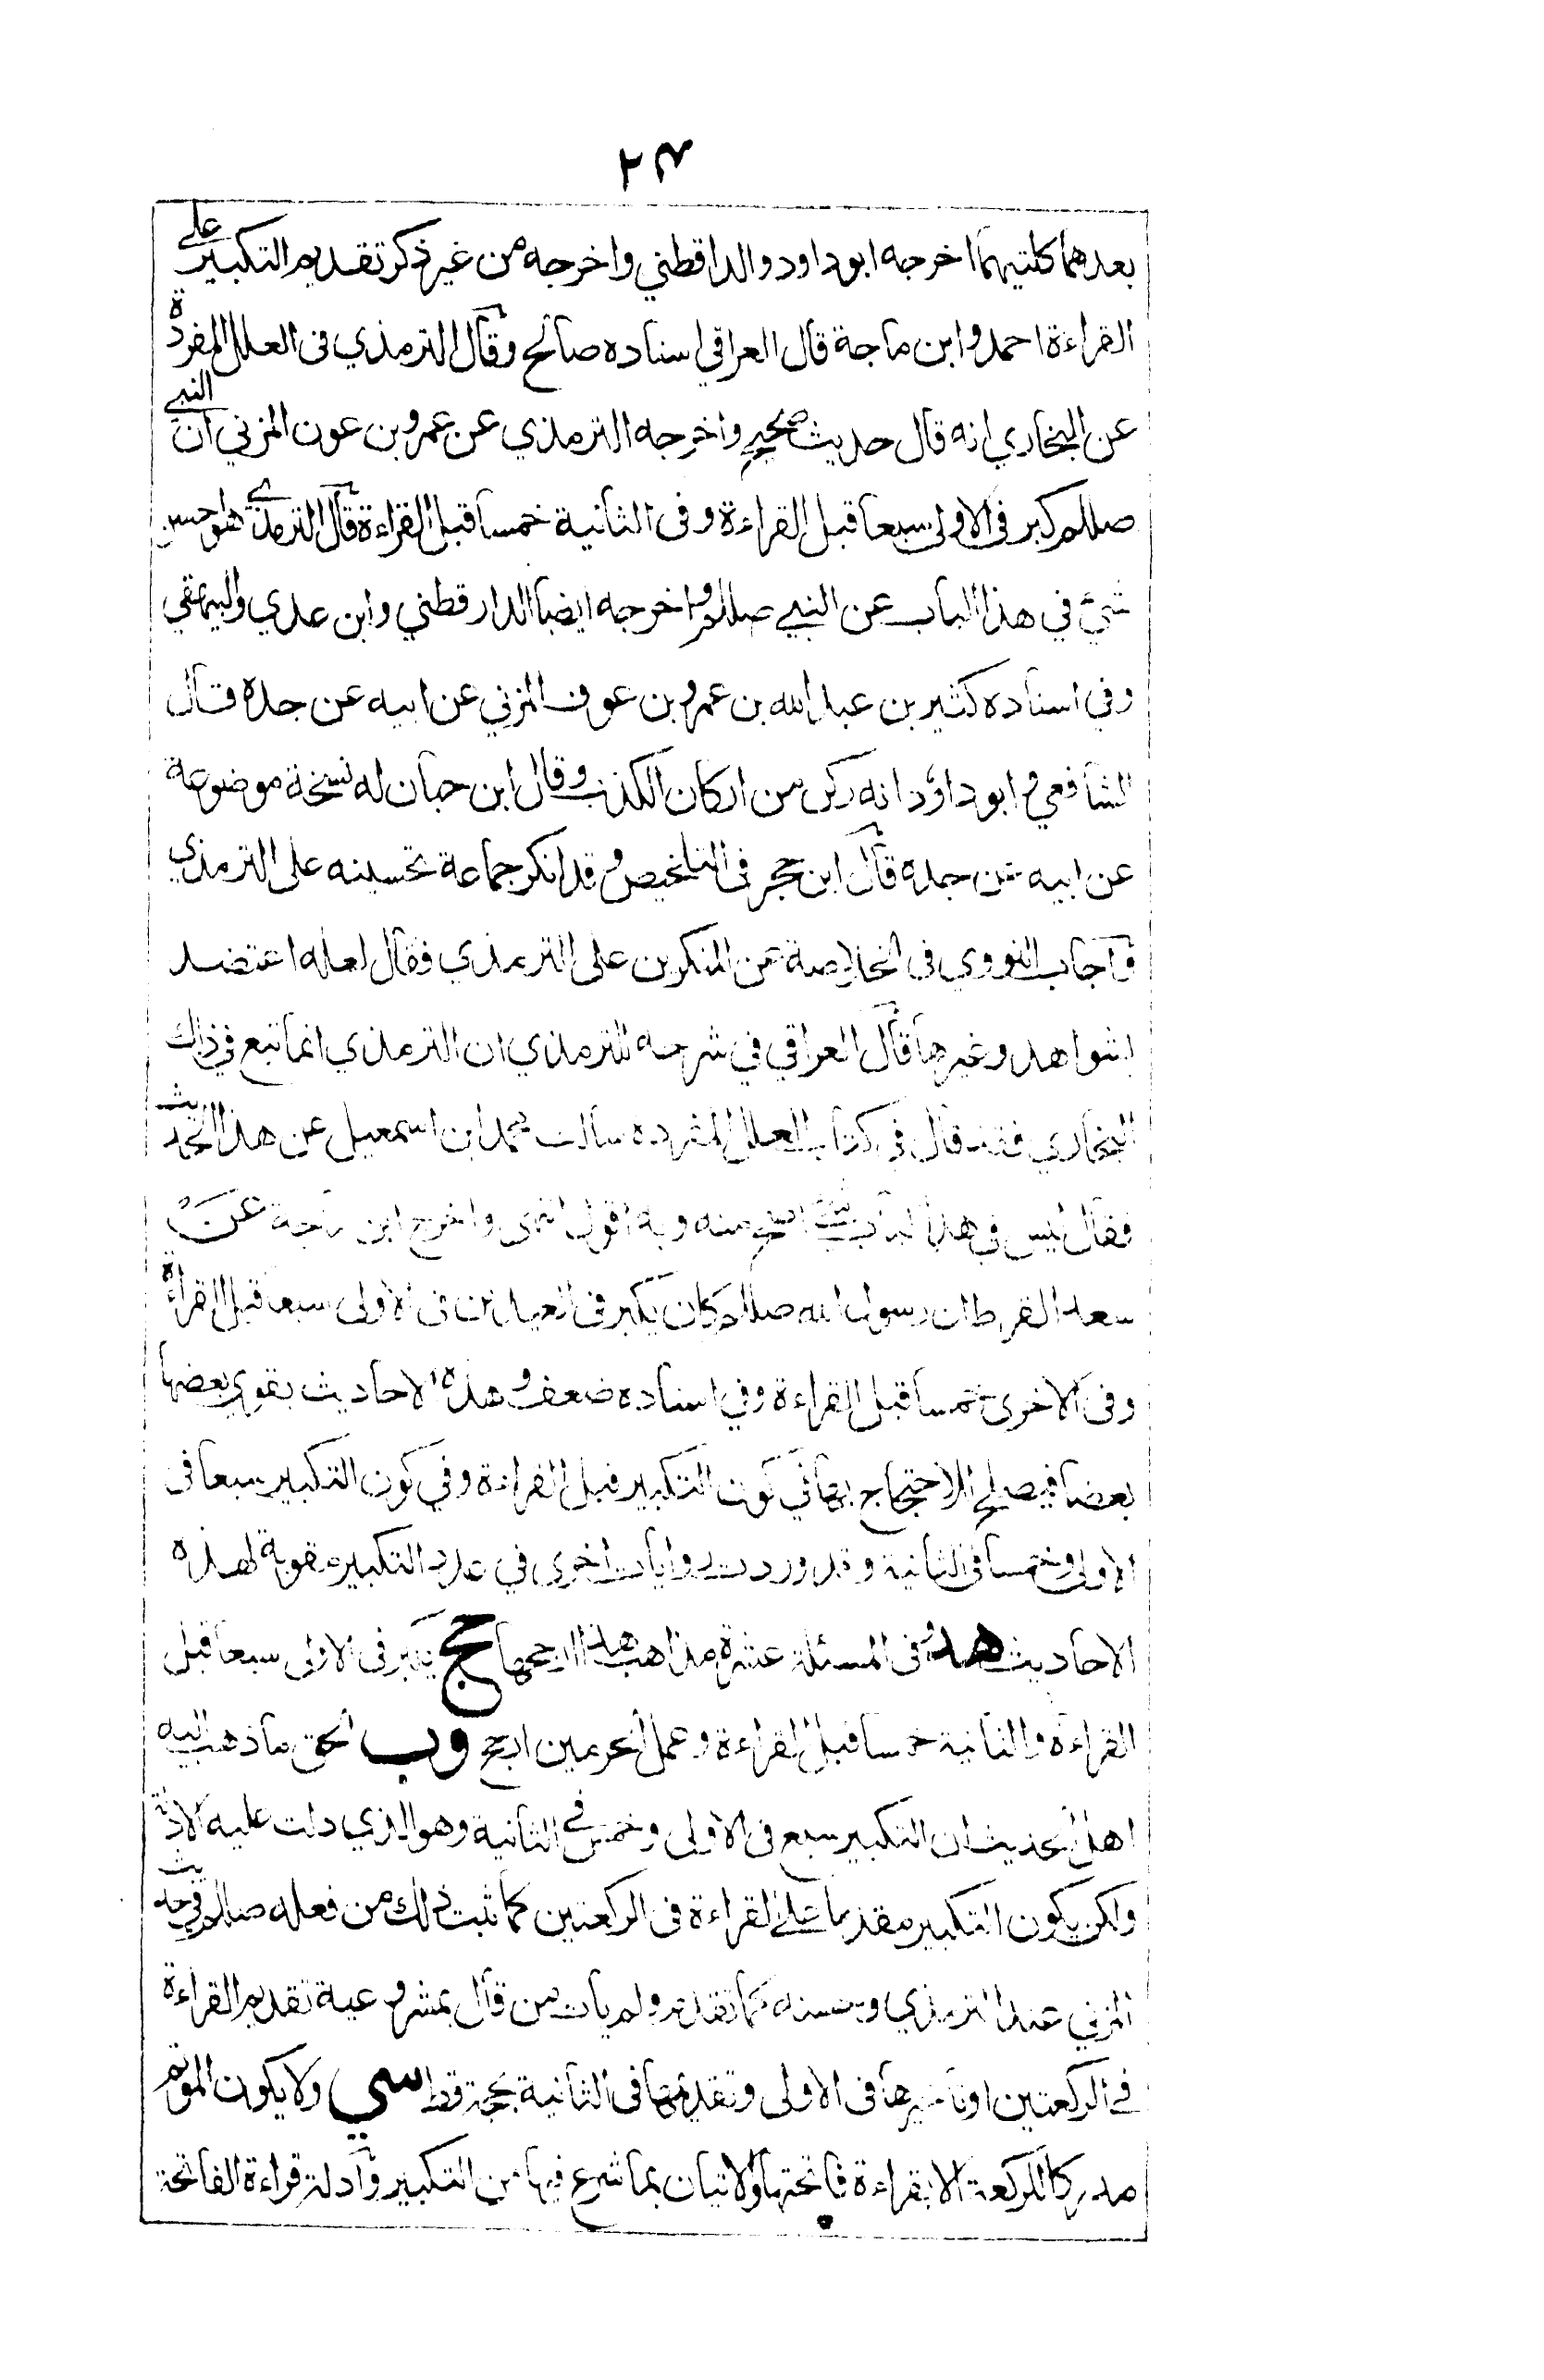 ٢٤
بعدهما كلتيهما اخرجه ابوداود والدارقطني واخرجه من غير ذكر تقديم التكبير على
القراءة احمد وابن ماجة قال العراقي اسناده صالح وقال الترمذي في العلل المفردة
عن البخاري انه قال حديث صحيح واخرجه الترمذي عن عمرو بن عون المزني ان النبي
صللم كبر في الاولى سبعا قبل القراءة وفى الثانية خمسا قبل القراءة قال الترمذي هو احسن
شئ في هذا الباب عن النبي صللم واخرجه ايضا الدارقطني وابن عدي والبيهقي
وفي اسناده كثير بن عبد الله بن عمرو بن عوف المزني عن ابيه عن جده قال
الشافعي و ابو داؤد انه ركن من اركان الكذب وقال ابن حبان له نسخة موضوعة
عن ابيه عن جده قال ابن حجر فى التلخيص وقد انكر جماعة تحسينه على الترمذي
فاجاب النووي فى الخلاصة عن المنكرين على الترمذي فقال لعله اعتضد
بشواهد وغيرها قال العراقي في شرحه للترمذي ان الترمذي انما تبع في ذلك
البخاري فقد قال في كتاب العلل المفرده سألت محمد ابن اسمعيل عن هذا الحديث
فقال ليس في هذا الباب شئ اصح منه وبه اقول انتهى واخرج ابن ماجة عن
سعد القرظ ان رسول الله صللم كان يكبر فى العيدين فى الاولى سبعا قبل القراءة
وفى الاخرى خمسا قبل القراءة وفي اسناده ضعف وهذه الاحاديث يقوي بعضها
بعضا فيصلح للاحتجاج بها في كون التكبير قبل القراءة وفي كون التكبير سبعا فى
الاولى وخمسا فى الثانية وقد وردت روايات اخرى في عدد التكبير مقوية لهذه
الاحاديث هد وفى المسئلة عشرة مذاهب هذا ارجحها حج يكبر فى الاولى سبعا قبل
القراءة والثانية خمسا قبل القراءة وعمل الحرمين ارجح وب الحق ما ذهب اليه
اهل الحديث ان التكبير سبع فى الاولى وخمس في الثانية وهو الذي دلت عليه الادلة
ولكن يكون التكبير مقدما على القراءة فى الركعتين كما ثبت ذلك من فعله صللم في حديث
المزني عند الترمذي وحسنه كما تقدم ولم يأت من قال بمشروعية تقديم القراءة
في الركعتين او تأخيرها فى الاولى وتقديمها فى الثانية بحجة قط سي ولا يكون المؤتم
مدركا للركعة الا بقراءة فاتحتها والاتيان بما شرع فيها من التكبير وادلة قراءة الفاتحة